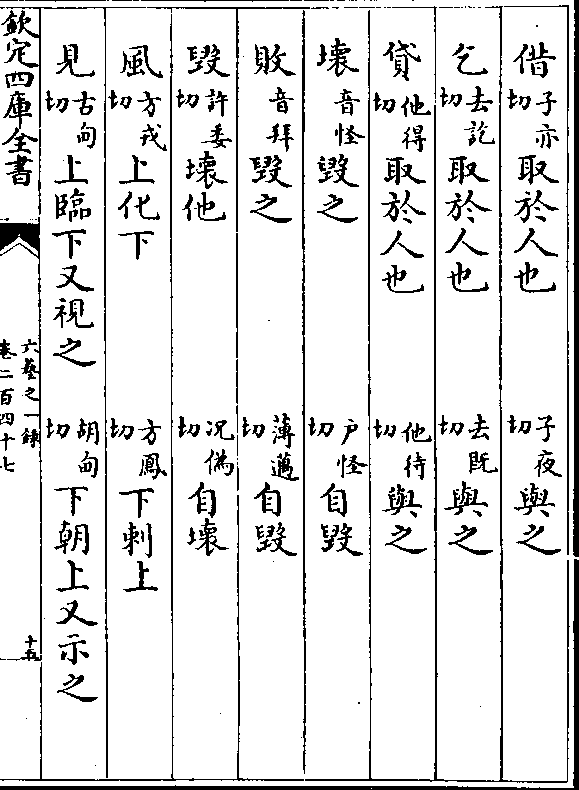 借子亦切取於人也　子夜切與之
乞去訖切取於人也　去既切與之
貸他得切取於人也　他待切與之
壞音怪毀之　戶怪切自毀
敗音拜毀之　薄邁切自毀
毀許委切壞他　況偽切自壞
風方戎切上化下　方鳳切下刺上
見古甸切上臨下又視之　胡甸切下朝上又示之
欽定四庫全書　六藝之一錄卷二百四十七　十五